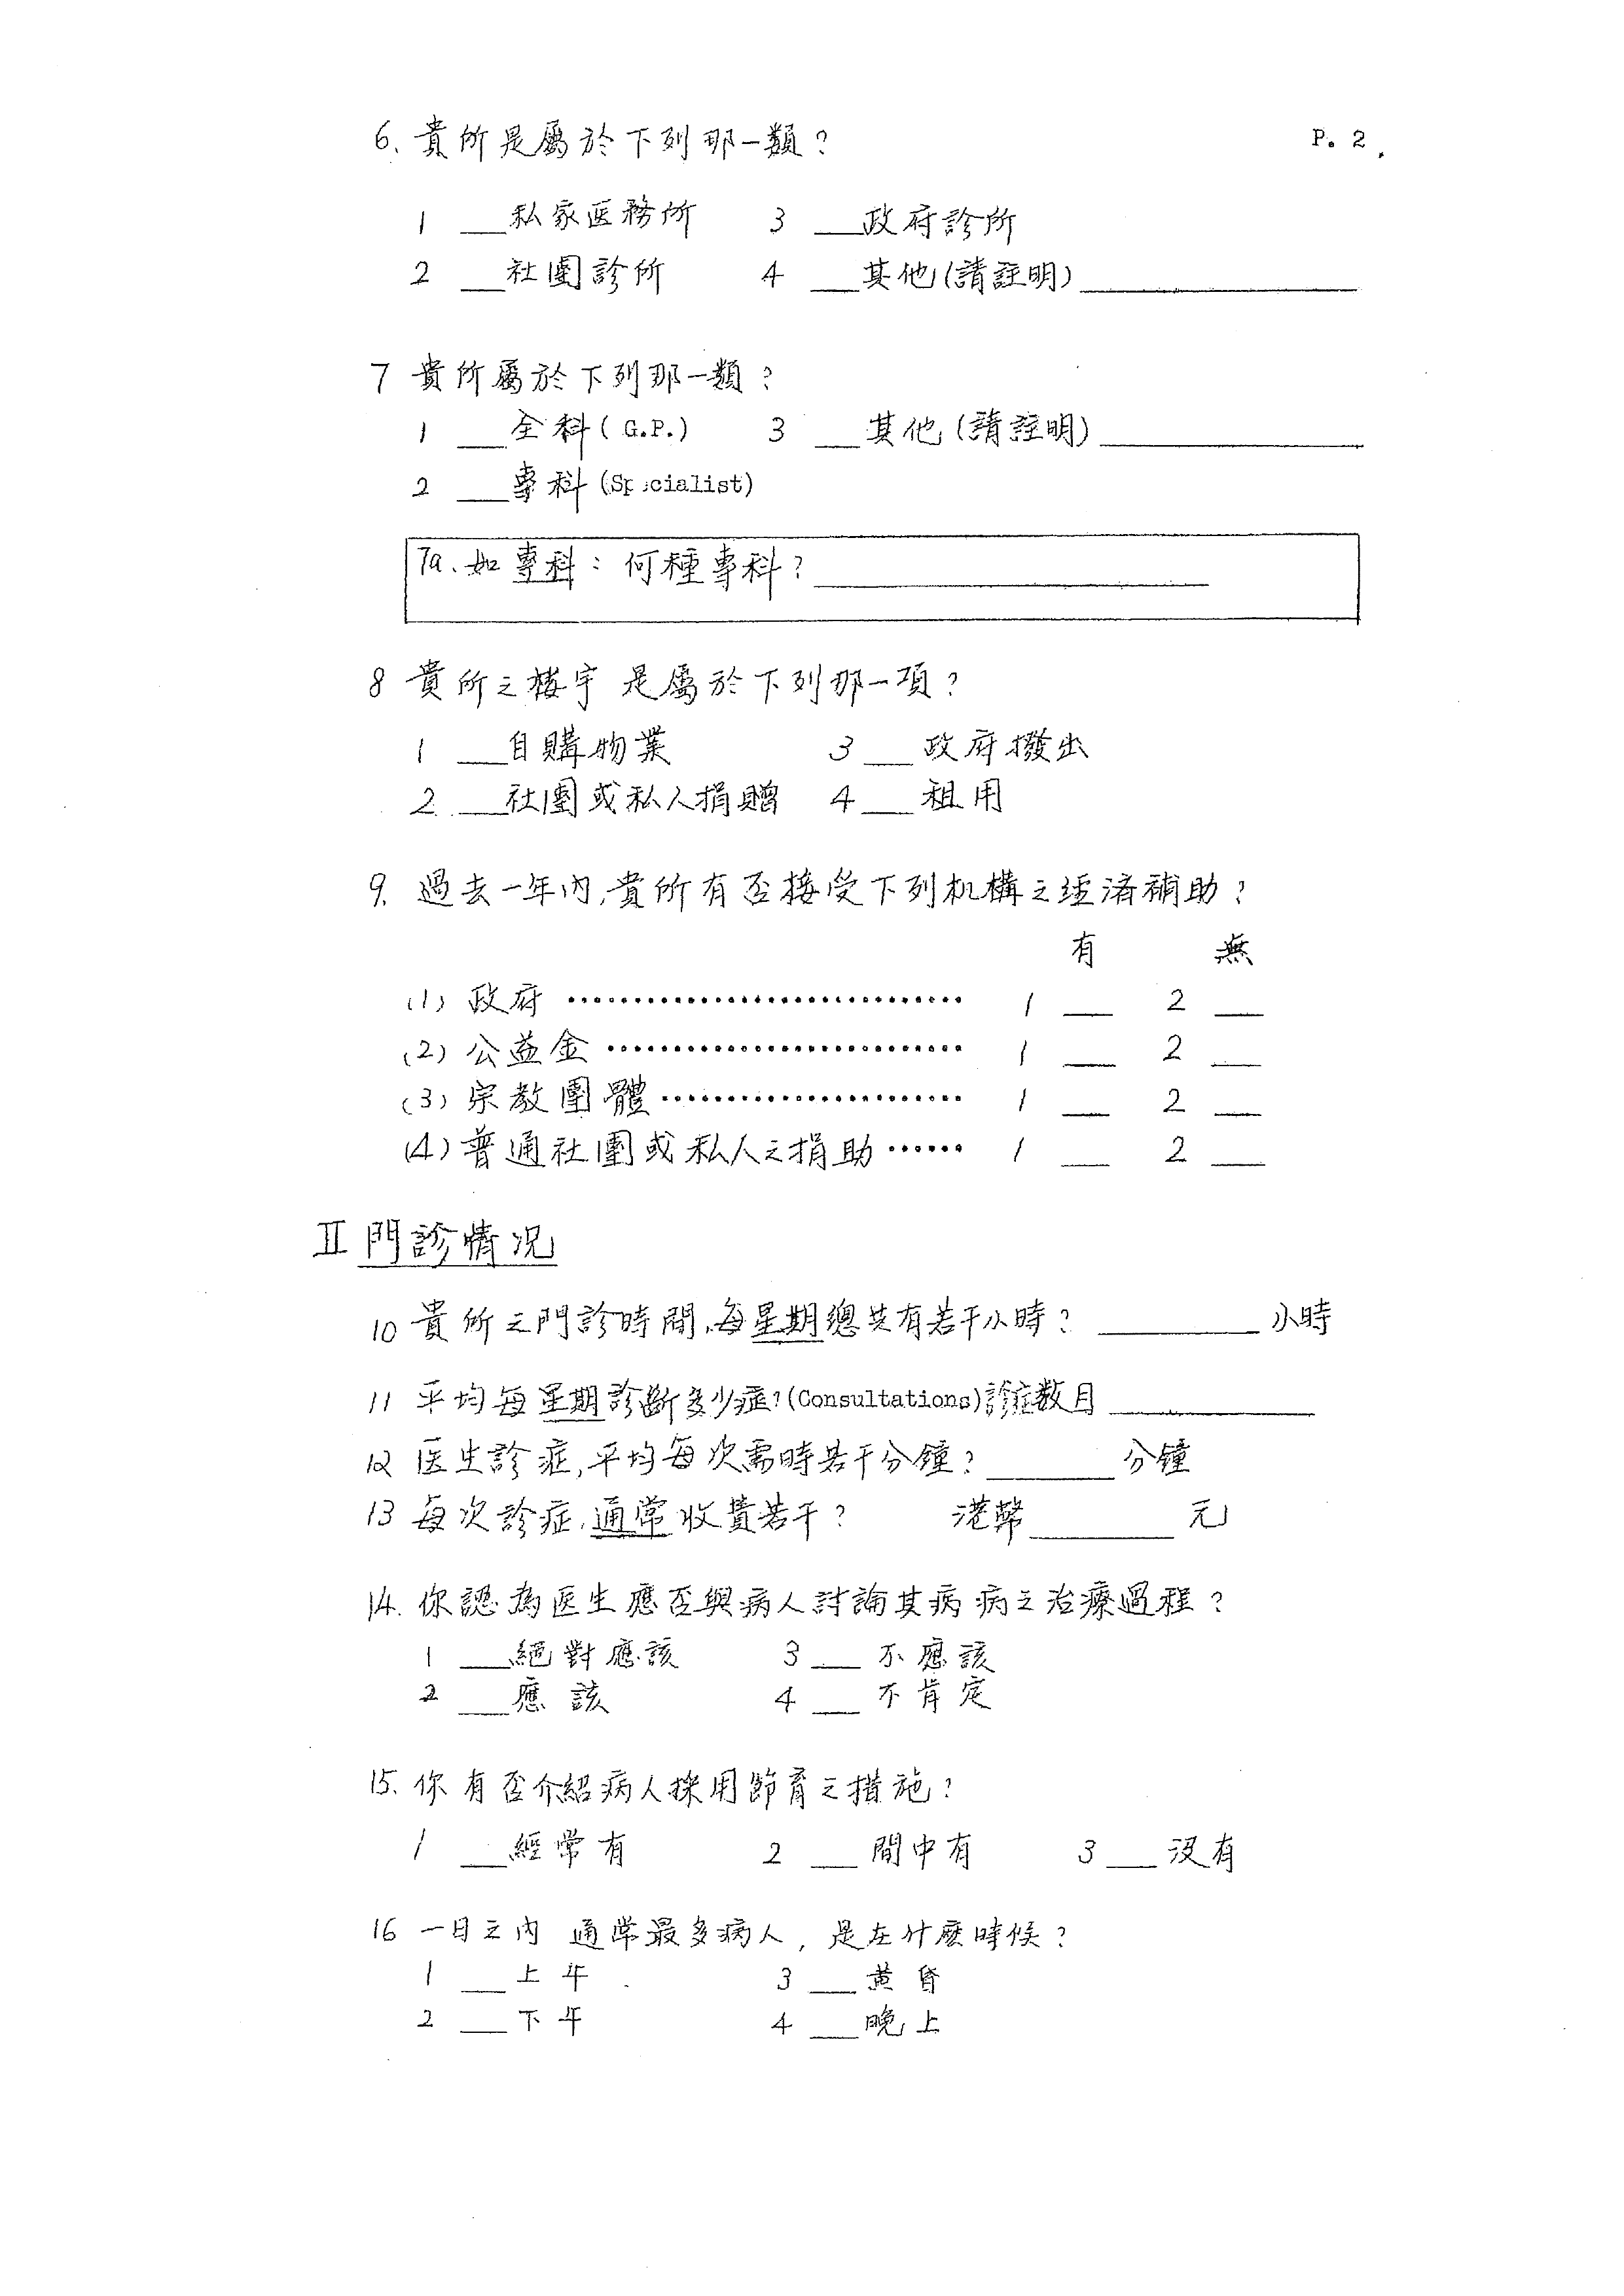 P. 2.
6. 貴所是屬於下列那一類?
1 __私家医務所 3 __政府診所
2 __社團診所 4 __其他(請註明)__________
7 貴所屬於下列那一類?
1 __全科(G.P.) 3 __其他(請註明)__________
2 __專科(Specialist)
7a. 如專科: 何種專科? __________
8 貴所之楼宇是屬於下列那一項?
1 __自購物業 3 __政府撥出
2 __社團或私人捐贈 4 __租用
9. 過去一年內,貴所有否接受下列机構之経済補助?
有 無
(1) 政府 ………… 1 __ 2 __
(2) 公益金 ………… 1 __ 2 __
(3) 宗教團體 ………… 1 __ 2 __
(4) 普通社團或私人之捐助 …… 1 __ 2 __
II 門診情况
10 貴所之門診時間,每星期總共有若干小時? ______小時
11 平均每星期診斷多少症?(Consultations)診症数目________
12 医生診症,平均每次需時若干分鐘? ______分鐘
13 每次診症,通常收費若干? 港幣______元
14. 你認為医生應否與病人討論其病病之治療過程?
1 __絕對應該 3 __不應該
2 __應該 4 __不肯定
15. 你有否介紹病人採用節育之措施?
1 __經常有 2 __間中有 3 __没有
16 一日之內 通常最多病人,是在什麽時候?
1 __上午 3 __黄昏
2 __下午 4 __晚上